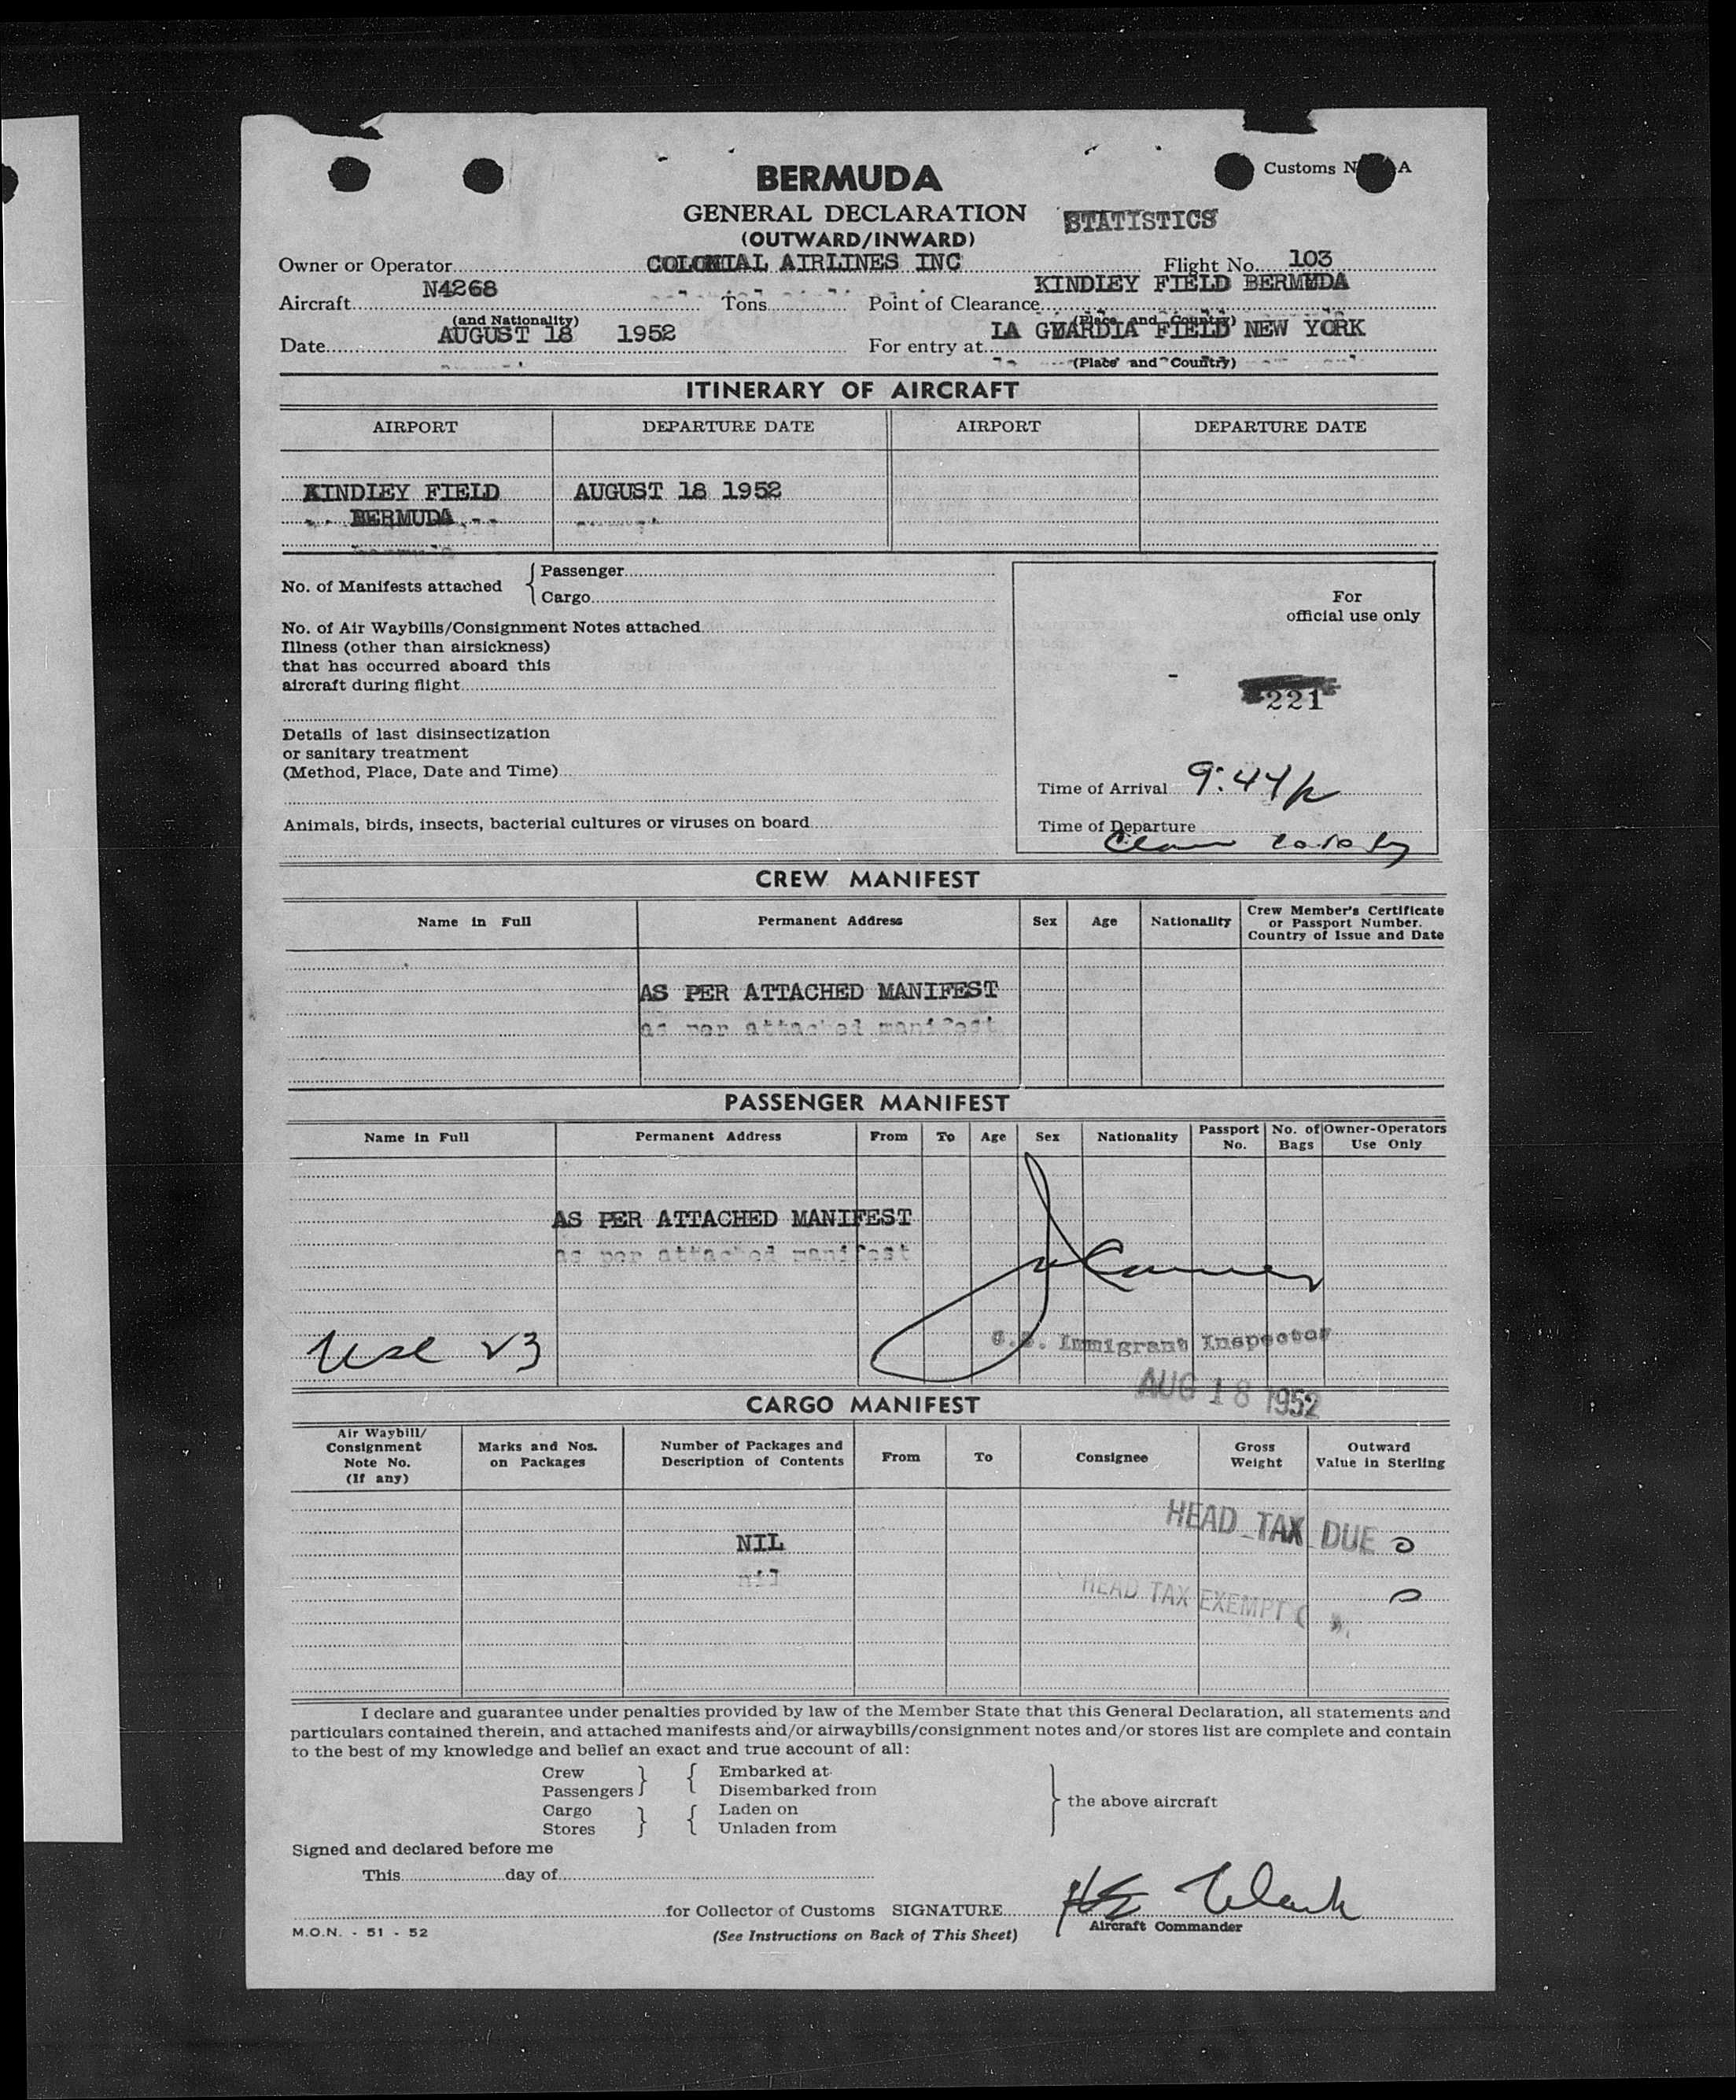 Customs N A
BERMUDA
GENERAL DECLARATION
STATISTICS
(OUTWARD/INWARD)
Owner or Operator COLONIAL AIRLINES INC Flight No. 103
Aircraft N4268 Tons Point of Clearance KINDLEY FIELD BERMUDA
(and Nationality) (Place and Country)
Date AUGUST 18 1952 For entry at LA GUARDIA FIELD NEW YORK
(Place and Country)
ITINERARY OF AIRCRAFT
AIRPORT DEPARTURE DATE AIRPORT DEPARTURE DATE
KINDLEY FIELD AUGUST 18 1952
BERMUDA
No. of Manifests attached { Passenger
Cargo
For
official use only
No. of Air Waybills/Consignment Notes attached
Illness (other than airsickness)
that has occurred aboard this
aircraft during flight
221
Details of last disinsectization
or sanitary treatment
(Method, Place, Date and Time)
Time of Arrival 9:44 p
Animals, birds, insects, bacterial cultures or viruses on board
Time of Departure
CREW MANIFEST
Name in Full Permanent Address Sex Age Nationality Crew Member's Certificate
or Passport Number.
Country of Issue and Date
AS PER ATTACHED MANIFEST
as per attached manifest
PASSENGER MANIFEST
Name in Full Permanent Address From To Age Sex Nationality Passport No. No. of Bags Owner-Operators Use Only
AS PER ATTACHED MANIFEST
as per attached manifest
U.S. Immigrant Inspector
AUG 18 1952
CARGO MANIFEST
Air Waybill/
Consignment
Note No.
(If any)
Marks and Nos.
on Packages
Number of Packages and
Description of Contents
From To Consignee
Gross
Weight
Outward
Value in Sterling
HEAD TAX DUE 0
NIL
nil
HEAD TAX EXEMPT ( ). 0
I declare and guarantee under penalties provided by law of the Member State that this General Declaration, all statements and
particulars contained therein, and attached manifests and/or airwaybills/consignment notes and/or stores list are complete and contain
to the best of my knowledge and belief an exact and true account of all:
Crew } { Embarked at
Passengers Disembarked from
the above aircraft
Cargo } { Laden on
Stores Unladen from
Signed and declared before me
This day of
for Collector of Customs SIGNATURE
Aircraft Commander
M.O.N. - 51 - 52
(See Instructions on Back of This Sheet)